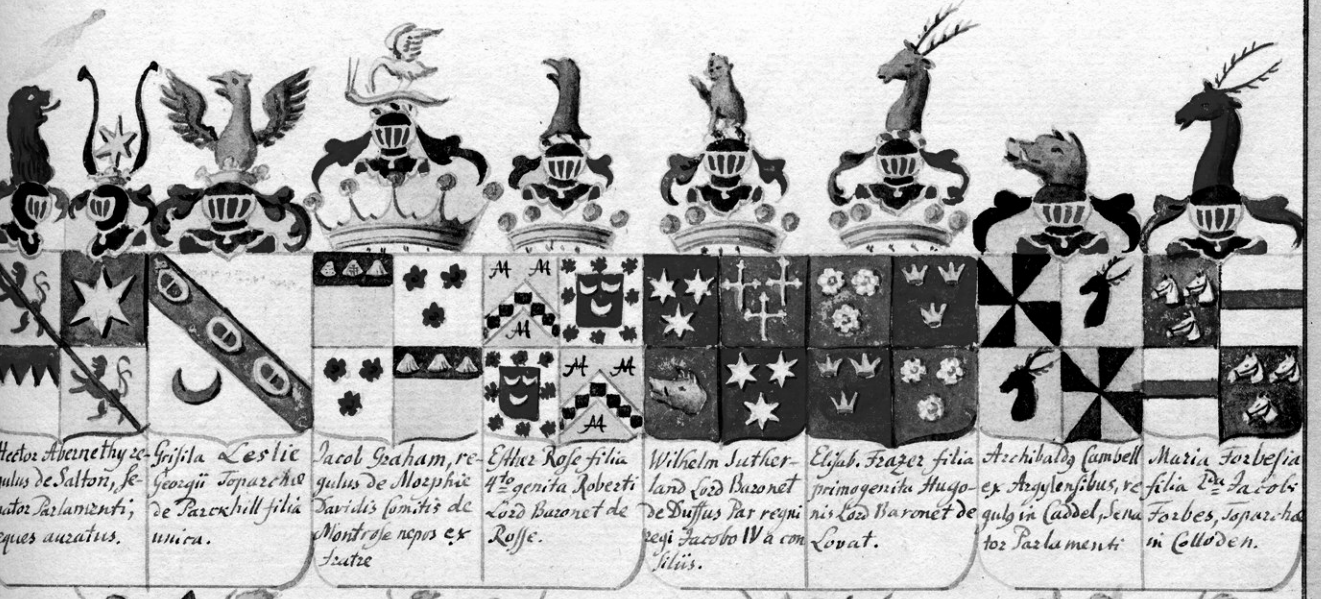 Hector Abernethy re-
gulus de Salton, Se-
nator Parlamenti,
eques auratus.
Grisila Leslie
Georgii Toparchæ
de Parckhill filia
unica.
Jacob Graham, re-
gulus de Morphie
Davidis Comitis de
Montrose nepos ex
fratre
Esther Rose filia
4to genita Roberti
Lord Baronet de
Rosse.
Wilhelm Suther-
land Lord Baronet
de Duffus Par regni
regi Jacobo IV a con
siliis.
Elisab. Frazer filia
primogenita Hugo-
nis Lord Baronet de
Lovat.
Archibaldq Cambell
ex Argylensibus, re
gulq in Caddel, Sena
tor Parlamenti
Maria Forbesia
filia 2da Jacobi
Forbes, Toparchæ
in Colloden.